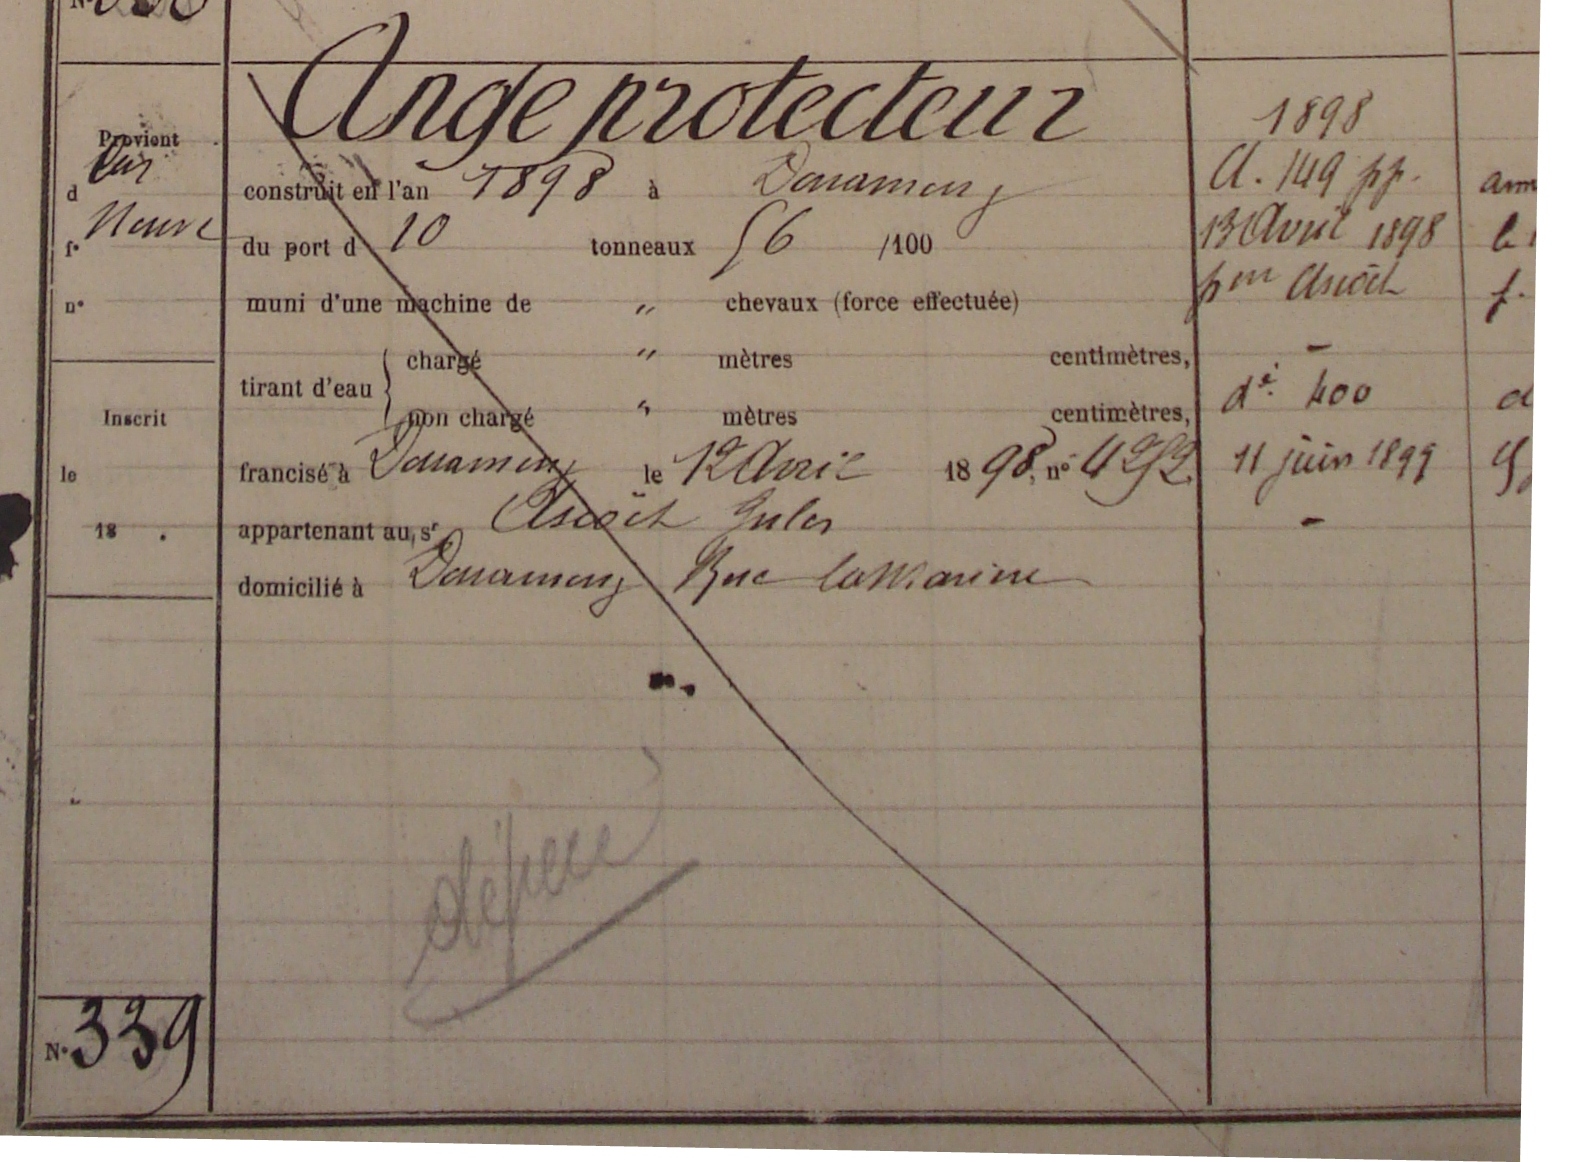 N°
Ange protecteur
Provient
d
f°
Neuve
n°
construit en l'an 1898 à Douarnenez
du port d 10 tonneaux 56 /100
muni d'une machine de " chevaux (force effectuée)
tirant d'eau { chargé " mètres centimètres,
non chargé " mètres centimètres,
francisé à Douarnenez le 12 Avril 1898, n° 4292
appartenant au sr Ascoët Jules
domicilié à Douarnenez Rue la Marine
Inscrit
le
18 .
dépecé
N° 339
1898
A. 149 pp.
13 Avril 1898
pon Ascoët
-
do 400
11 juin 1899
-
arm
f.